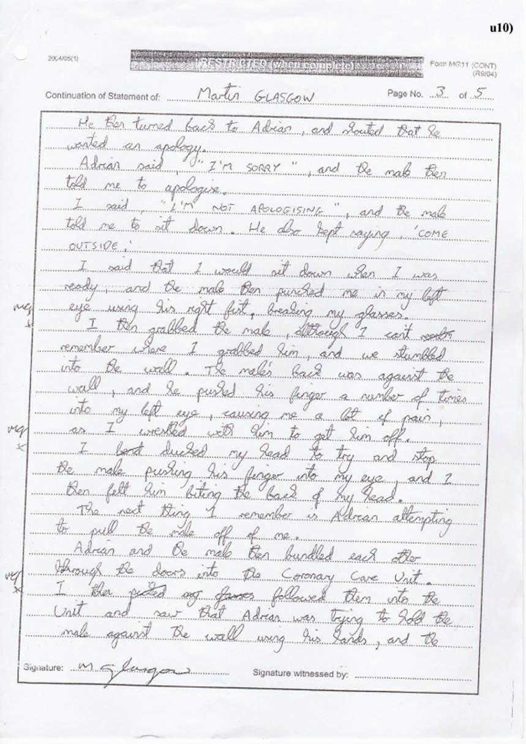 u10)
2004/05(1)
RESTRICTED (when complete)
Form MG11 (CONT)
(R9/04)
Continuation of Statement of: Martin GLASGOW
Page No. 3 of 5
He then turned back to Adrian, and shouted that he
wanted an apology.
Adrian said, "I'M SORRY", and the male then
told me to apologise.
I said, "I'M NOT APOLOGISING", and the male
told me to sit down. He also kept saying, 'COME
OUTSIDE.'
I said that I would sit down when I was
ready, and the male then punched me in my left
eye using his right fist, breaking my glasses.
I then grabbed the male although I can't
remember where I grabbed him, and we stumbled
into the wall. The male's back was against the
wall, and he pushed his finger a number of times
into my left eye, causing me a lot of pain,
as I wrestled with him to get him off.
I ducked my head to try and stop
the male pushing his finger into my eye, and I
then felt him biting the back of my head.
The next thing I remember is Adrian attempting
to pull the male off of me.
Adrian and the male then bundled each other
through the doors into the Coronary Care Unit.
I then followed them into the
Unit and saw that Adrian was trying to hold the
male against the wall using his hands, and the
Signature: M. Glasgow
Signature witnessed by: